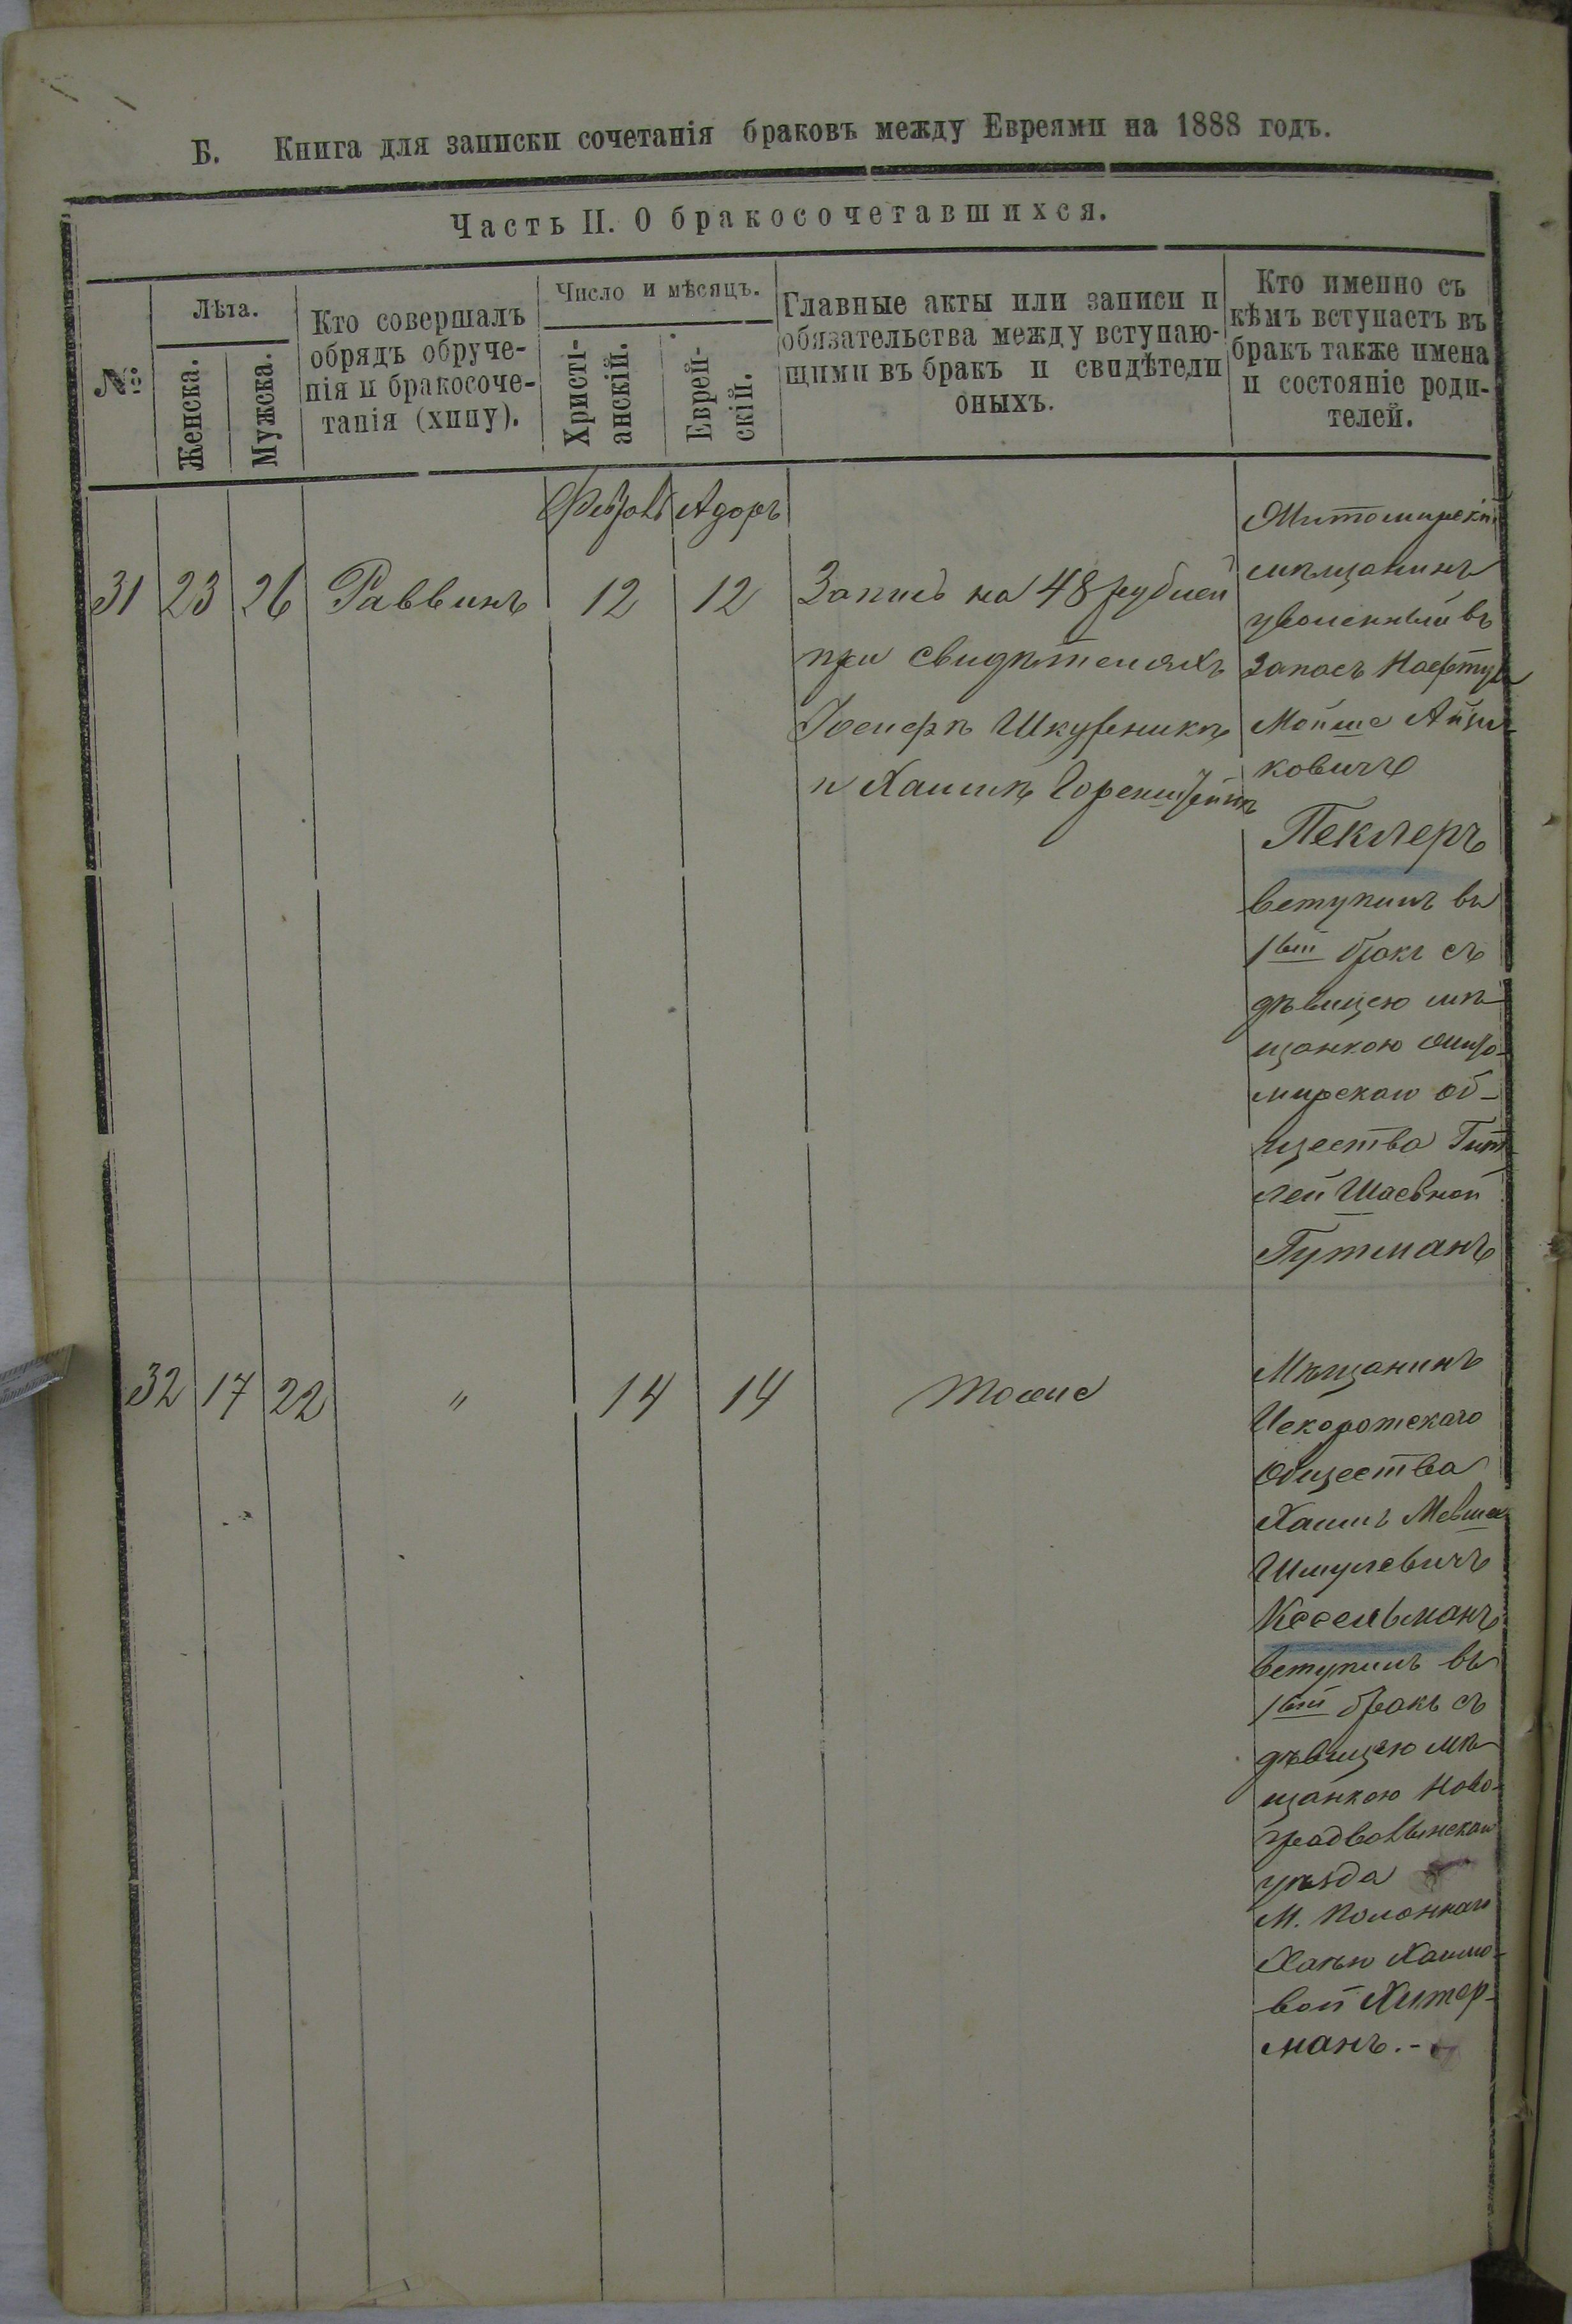 Б. Книга для записки сочетанія браковъ между Евреями на 1888 годъ.
Часть II. О бракосочетавшихся.
№
Лѣта.
Женска.
Мужска.
Кто совершалъ
обрядъ обруче-
нія и бракосоче-
танія (хипу).
Число и мѣсяцъ.
Христі-
анскій.
Еврей-
скій.
Главные акты или записи и
обязательства между вступаю-
щими въ бракъ и свидѣтели
оныхъ.
Кто именно съ
кѣмъ вступаетъ въ
бракъ также имена
и состояніе роди-
телей.
Адоръ
31 23 26 Раввинъ 12 12
Запись на 48 рублей
при свидѣтеляхъ
Іосифѣ Шкурникѣ
и Хаимѣ
Житомирскій
мѣщанинъ
уволенный въ
запасъ Нафтула
Мойше Айзи-
ковичъ
Пеклеръ
вступилъ въ
1вый бракъ съ
дѣвицею мѣ-
щанкою Жито-
мирскаго об-
щества Гит-
лей Шаевной
Гутманъ
32 17 22 " 14 14 тоже
Мѣщанинъ
Искоротскаго
Общества
Хаимъ Мевша
Шмулевичъ
Кесельманъ
вступилъ въ
1вый бракъ съ
дѣвицею мѣ-
щанкою Ново-
градволынскаго
уѣзда
М. Полоннаго
Ханью Хаимо-
вой Хитер-
манъ.-